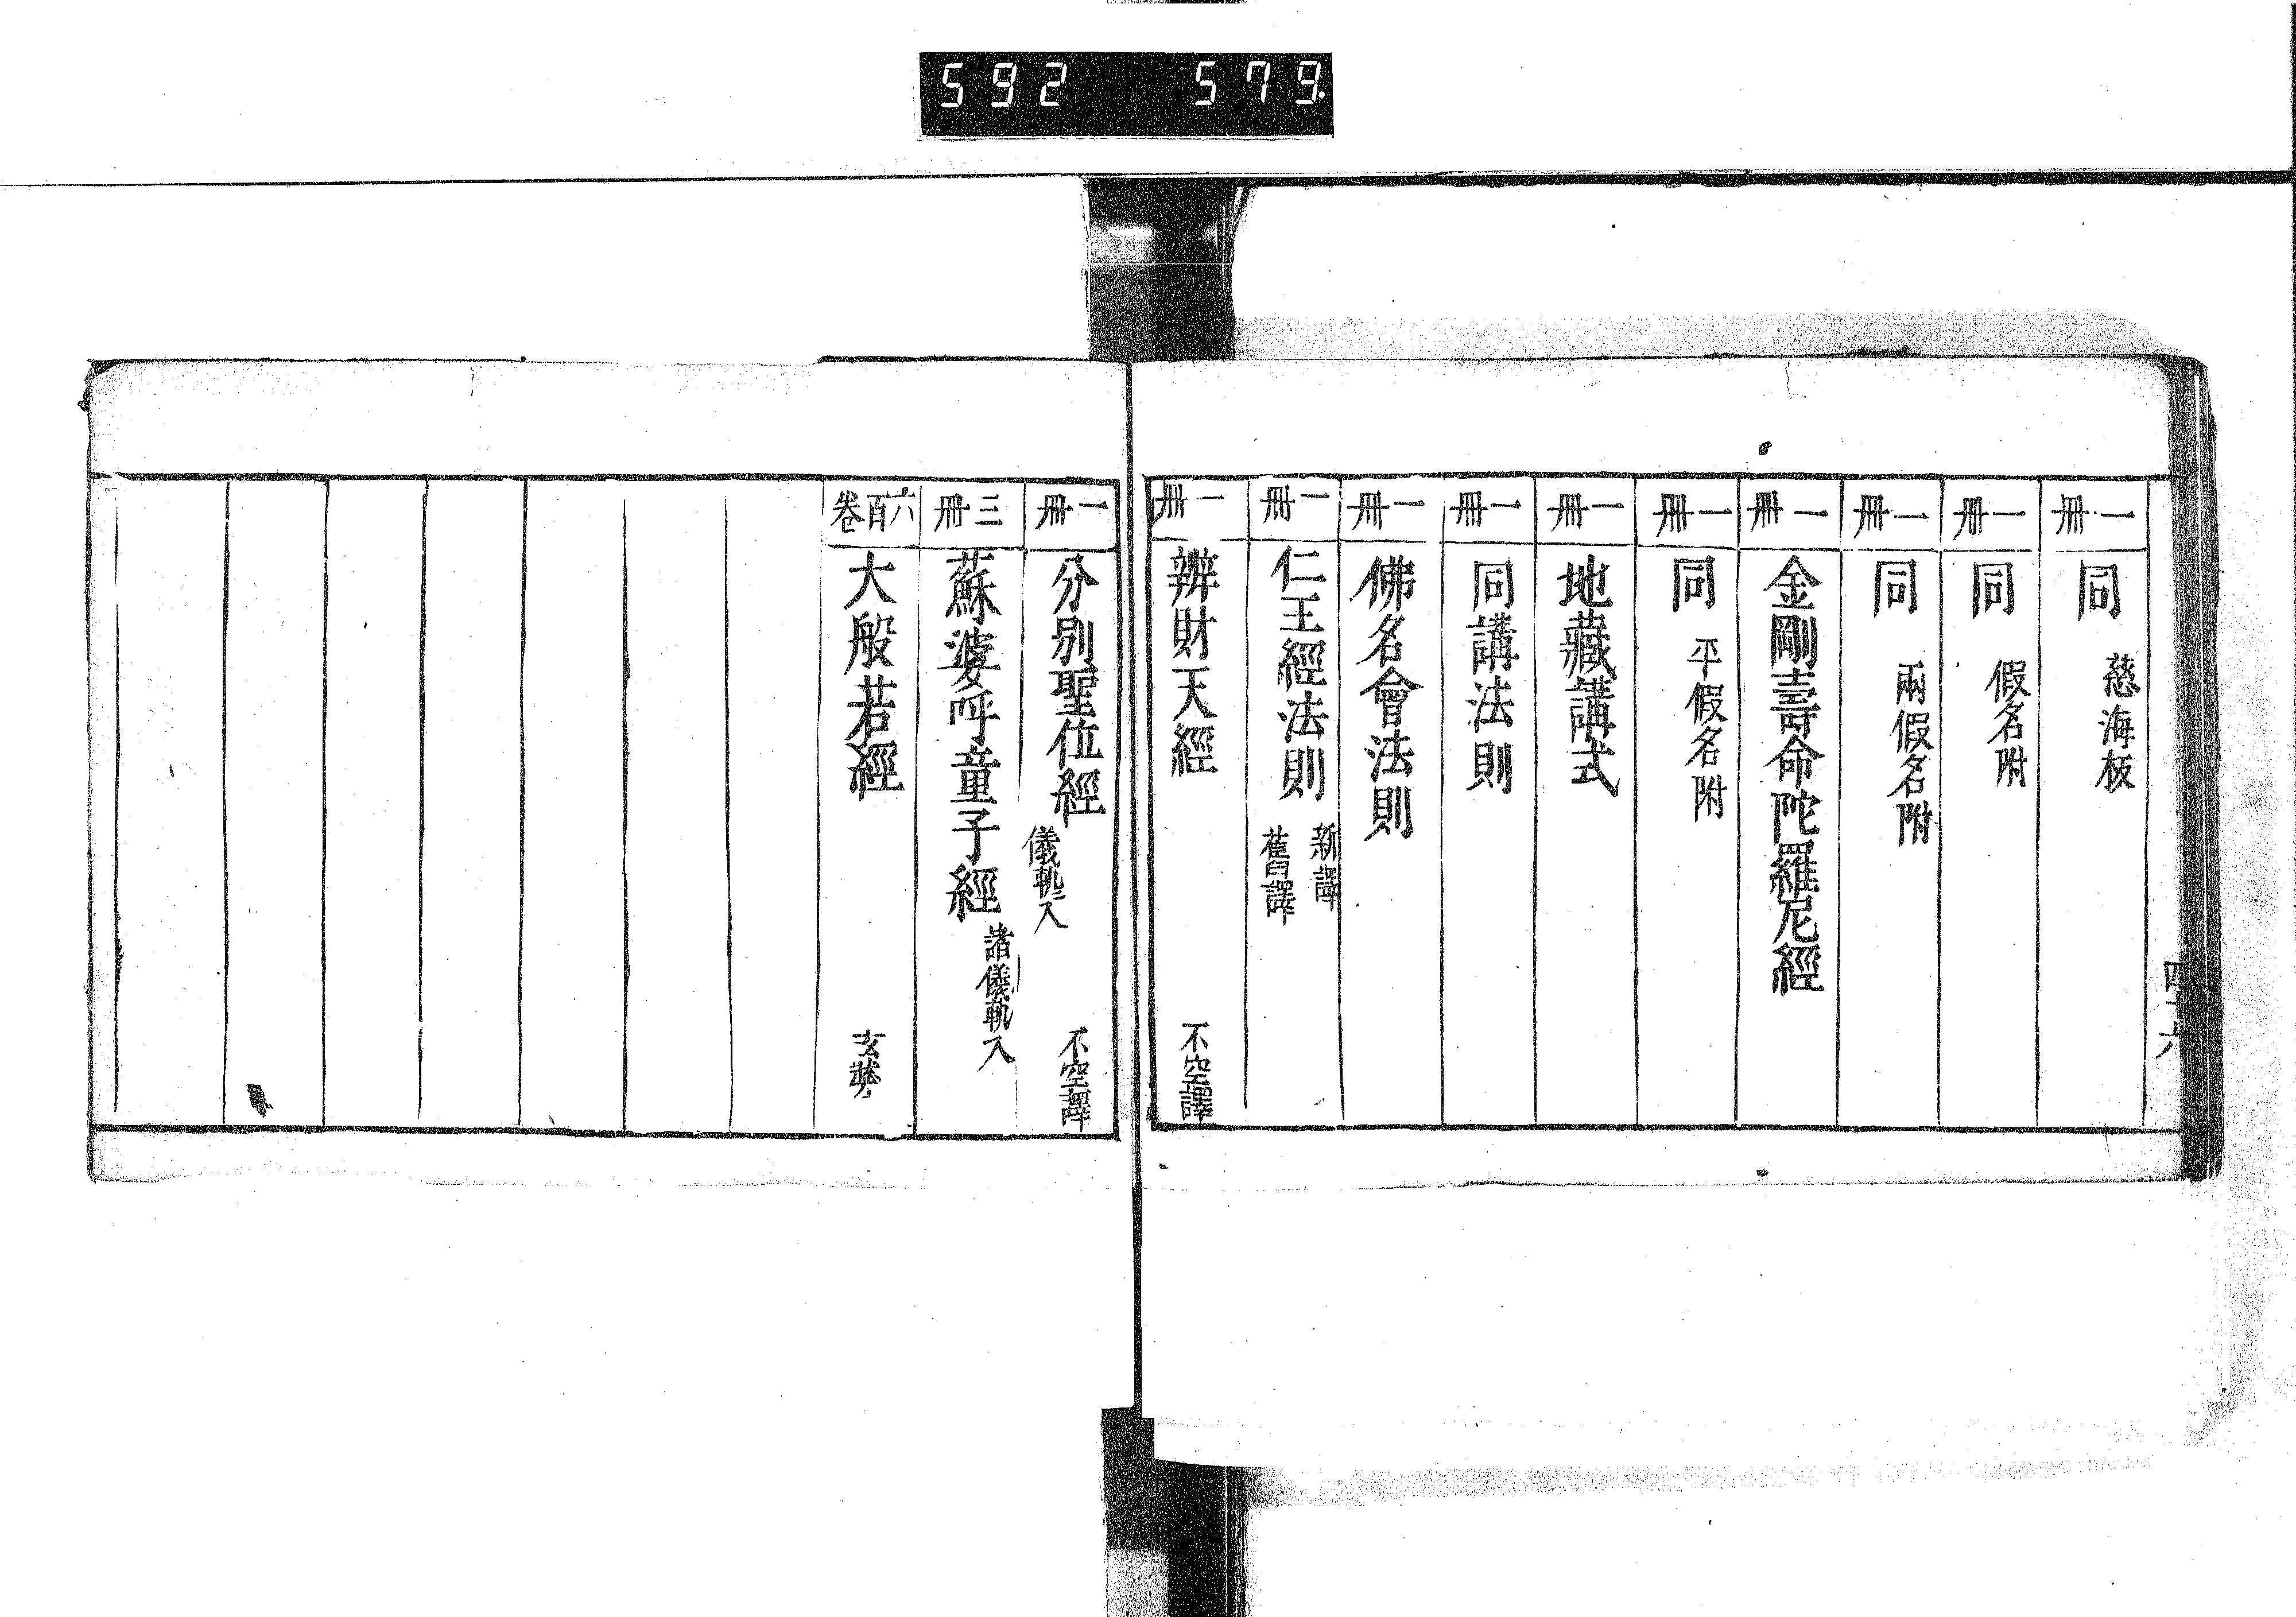 592 579.
一冊 同 慈海板
一冊 同 假名附
一冊 同 兩假名附
一冊 金剛壽命陀羅尼經
一冊 同 平假名附
一冊 地藏講式
一冊 同講法則
一冊 佛名會法則
一冊 仁王經法則 新譯 舊譯
一冊 辨財天經 不空譯
一冊 分別聖位經 儀軌入 不空譯
三冊 蘇婆呼童子經 諸儀軌入
六百卷 大般若經 玄奘